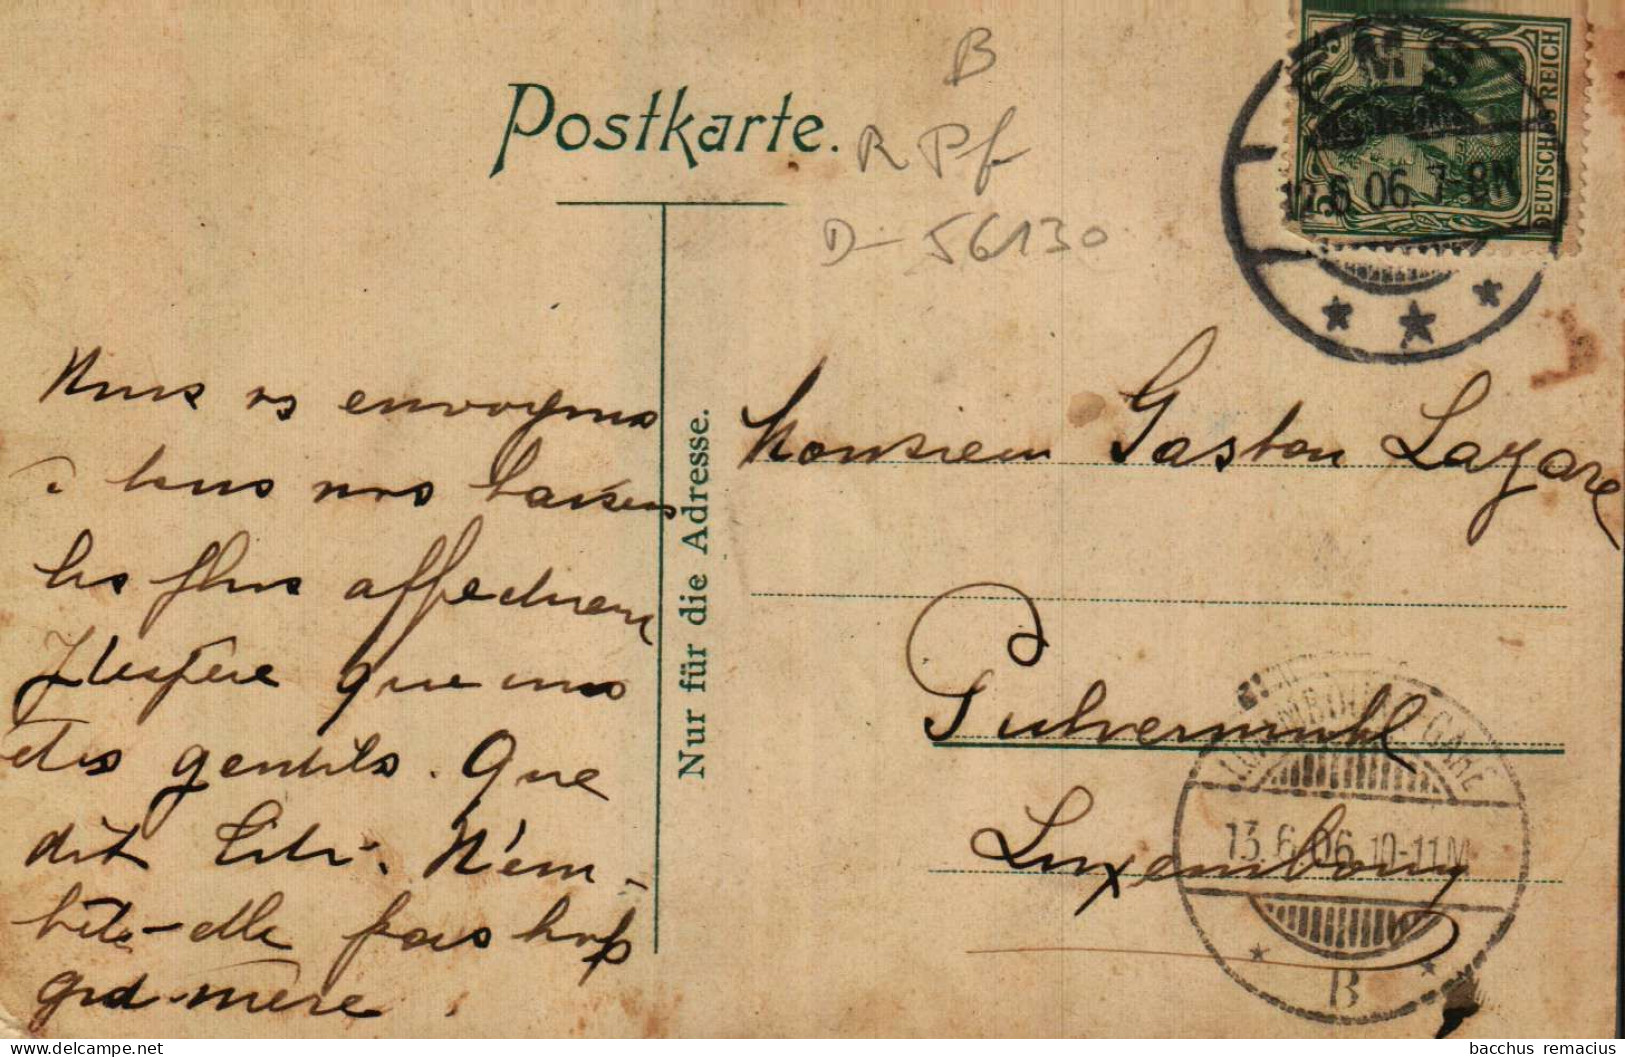 Postkarte.
B
R Pf
D- 56130
EMS
12.6.06. 7-8N
DEUTSCHES REICH
5
Nur für die Adresse.
Nous vs envoyons
à tous nos baisers
les plus affectueux
J'espère que vous
êtes gentils. Que
dit Titi. N'em-
bête-elle pas trop
grd-mère.
Monsieur Gaston Lazare
Pulvermühl
Luxembourg
LUXEMBURG GARE
13.6.06.10-11M
B
bacchus remacius